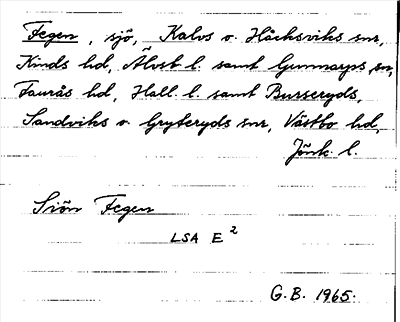 Fegen, sjö, Kalvs o. Håcksviks snr,
Kinds hd, Älvsb l. samt Gunnarps sn,
Faurås hd, Hall. l. samt Burseryds,
Sandviks o. Gryteryds snr, Västbo hd,
Jönk l.
Siön Fegen
LSA E²
G.B. 1965.